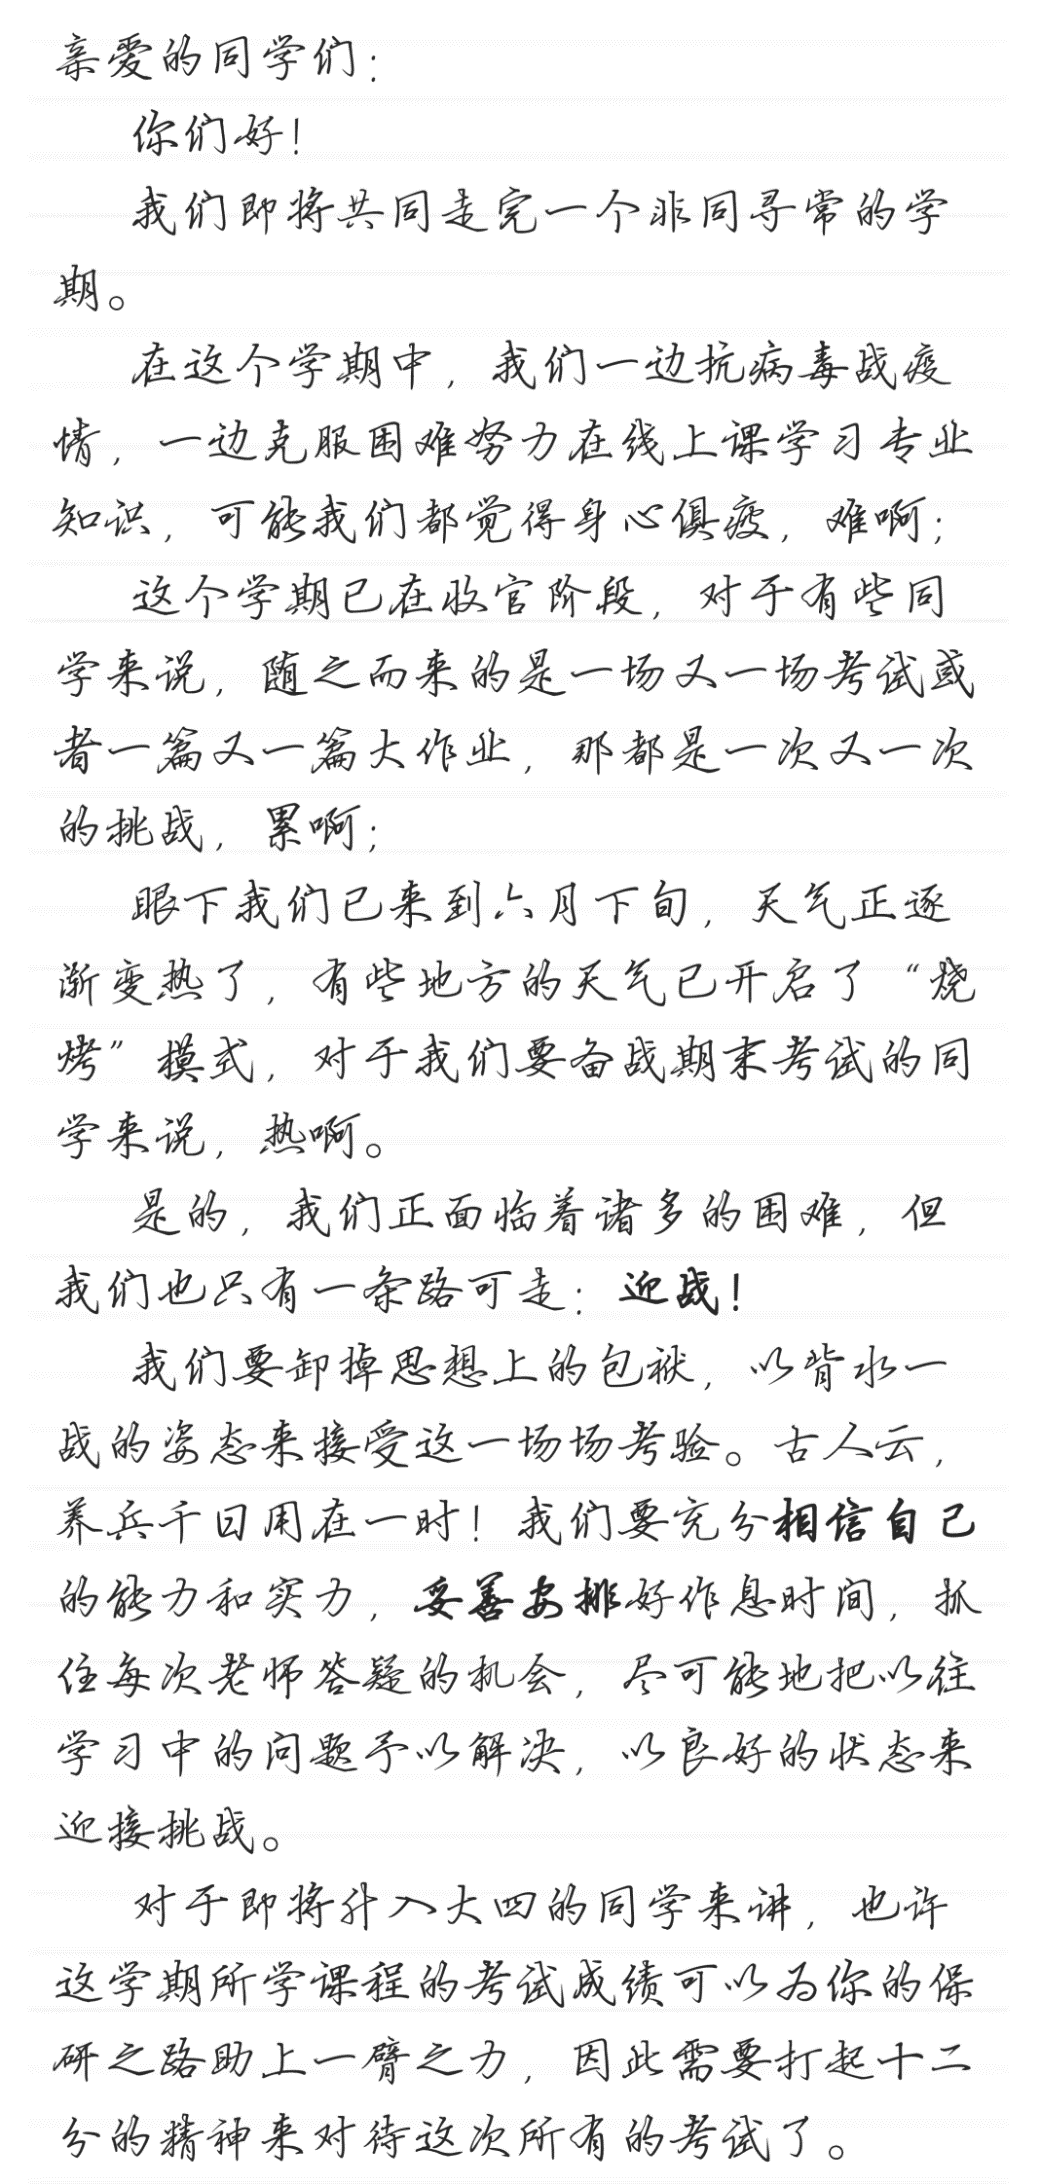 亲爱的同学们：
你们好！
我们即将共同走完一个非同寻常的学
期。
在这个学期中，我们一边抗病毒战疫
情，一边克服困难努力在线上课学习专业
知识，可能我们都觉得身心俱疲，难啊；
这个学期已在收官阶段，对于有些同
学来说，随之而来的是一场又一场考试或
者一篇又一篇大作业，那都是一次又一次
的挑战，累啊；
眼下我们已来到六月下旬，天气正逐
渐变热了，有些地方的天气已开启了“烧
烤”模式，对于我们要备战期末考试的同
学来说，热啊。
是的，我们正面临着诸多的困难，但
我们也只有一条路可走：迎战！
我们要卸掉思想上的包袱，以背水一
战的姿态来接受这一场场考验。古人云，
养兵千日用在一时！我们要充分相信自己
的能力和实力，妥善安排好作息时间，抓
住每次老师答疑的机会，尽可能地把以往
学习中的问题予以解决，以良好的状态来
迎接挑战。
对于即将升入大四的同学来讲，也许
这学期所学课程的考试成绩可以为你的保
研之路助上一臂之力，因此需要打起十二
分的精神来对待这次所有的考试了。